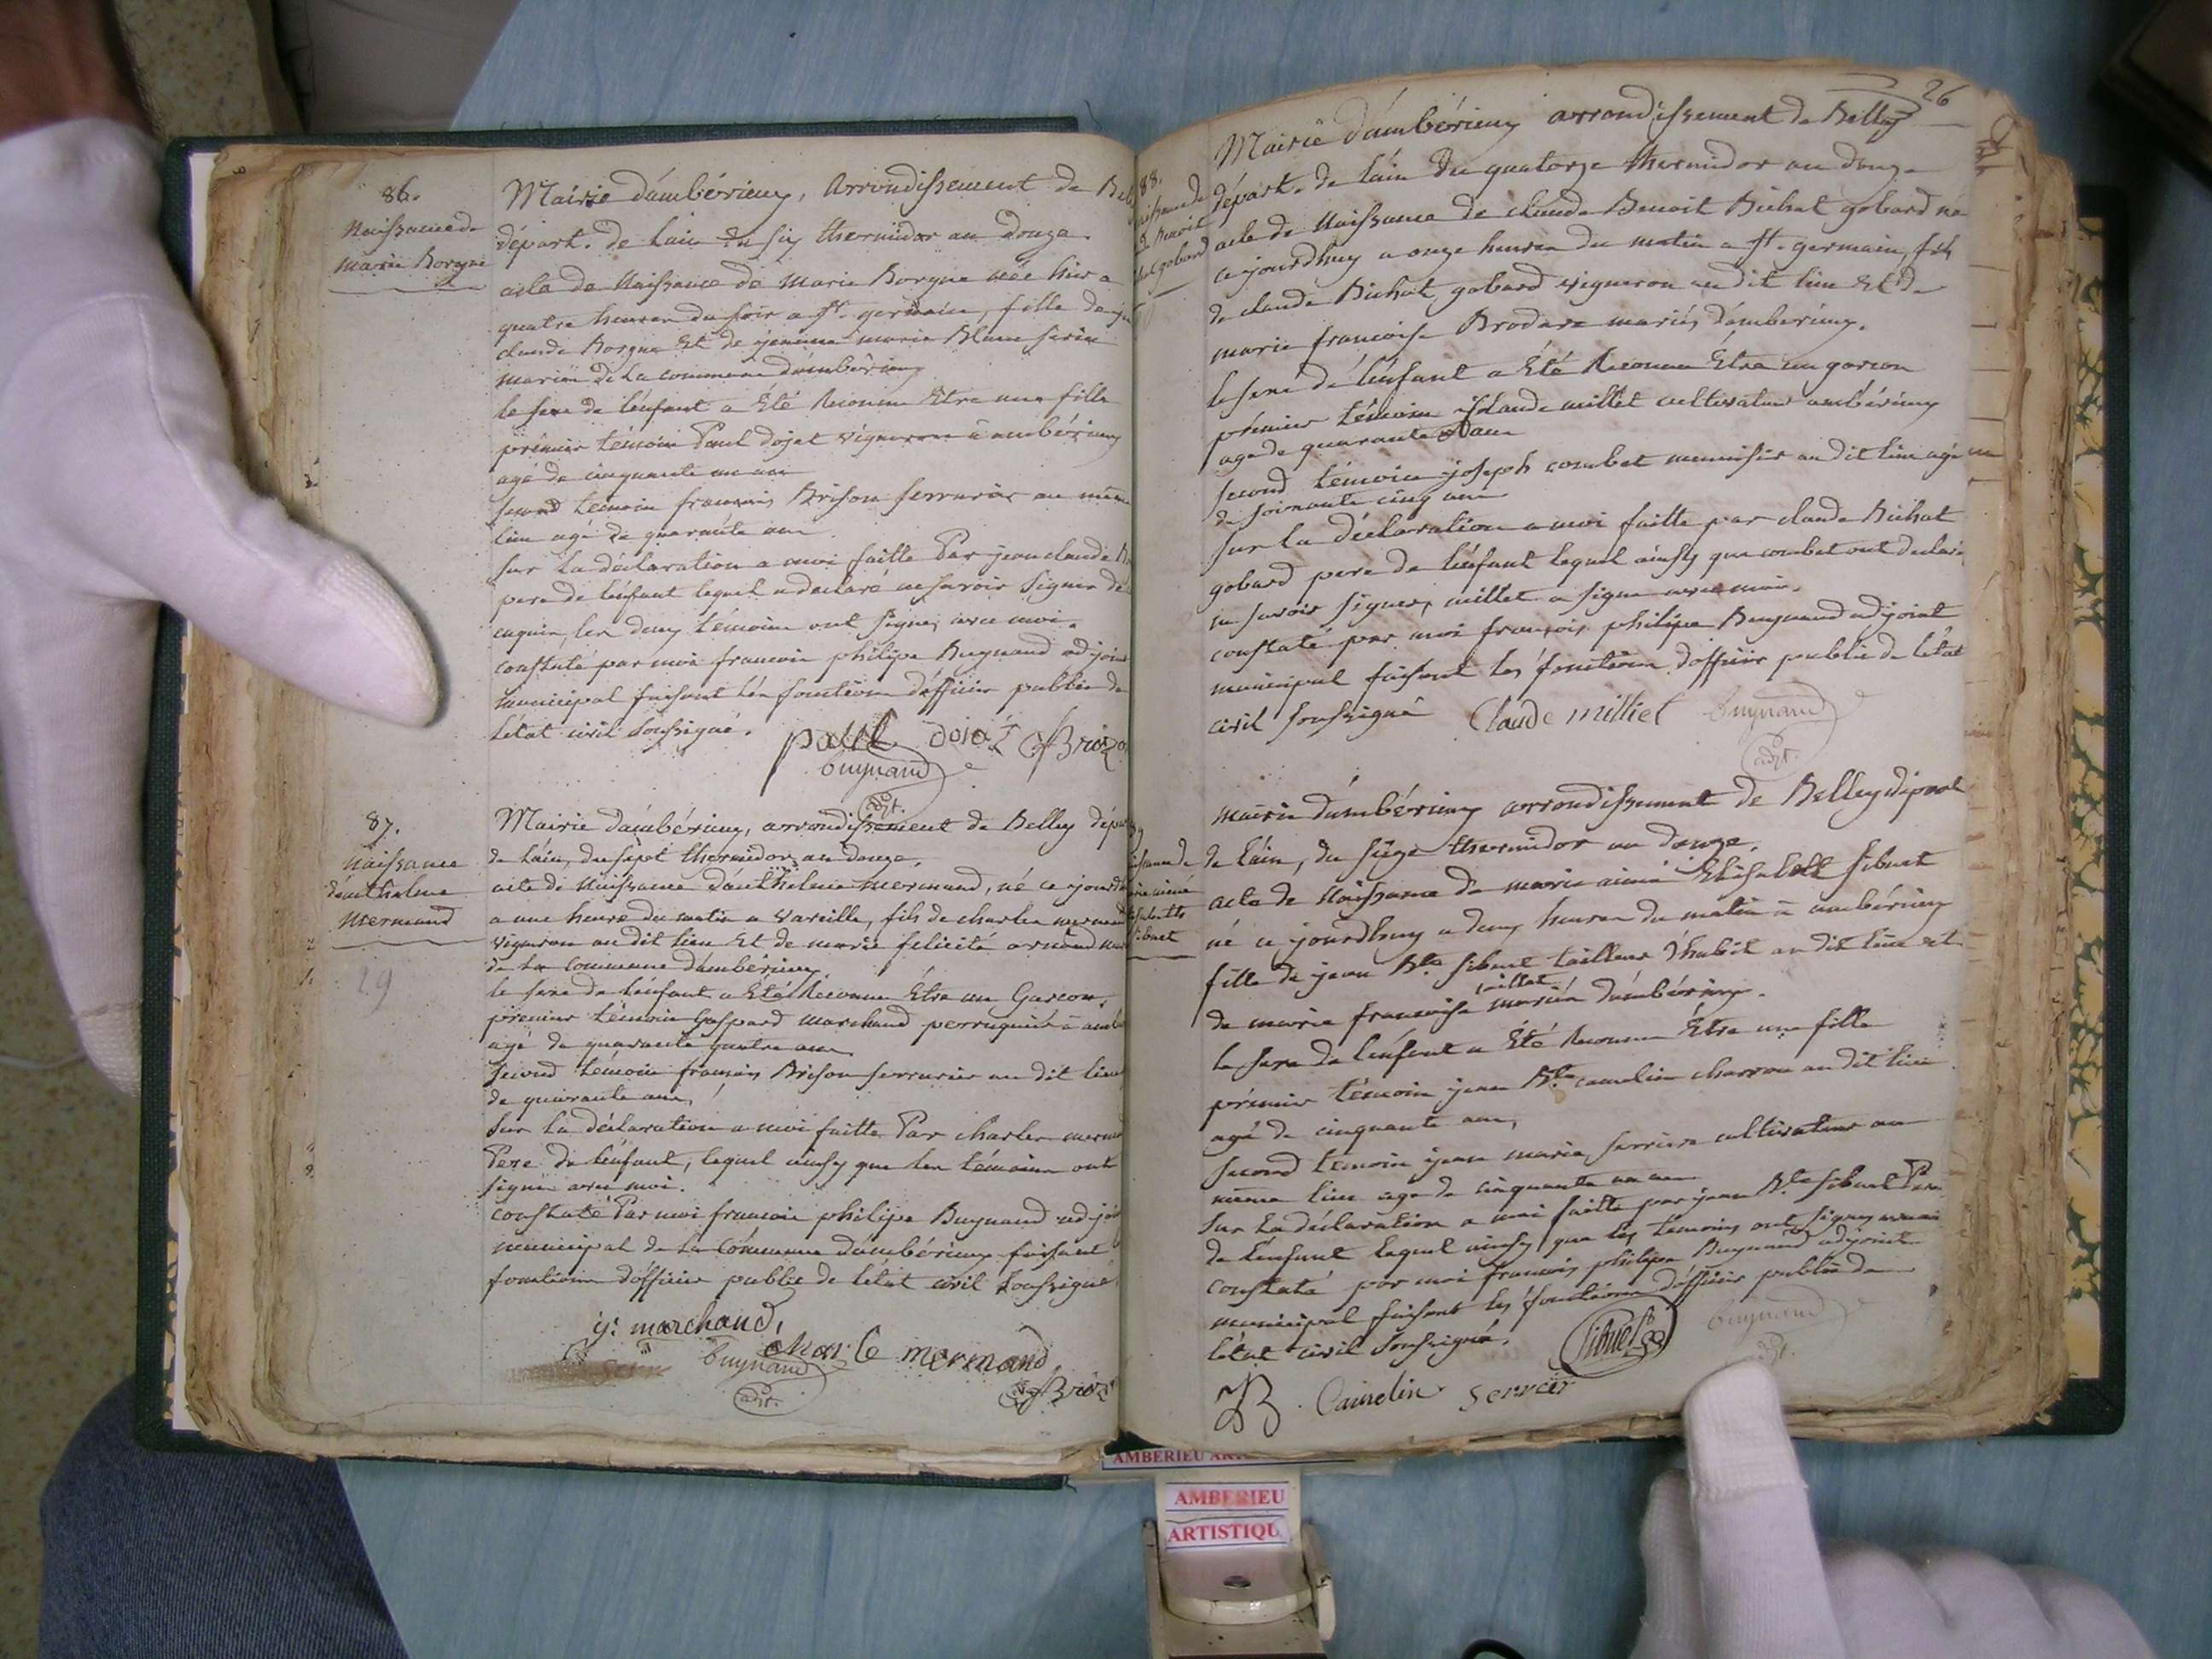 86.
Naissance de
marie Borgne
Mairie d'ambérieux, arrondissement de Bel
départ. de l'ain du six thermidor an douze.
acte de Naissance de marie Borgne née hier a
quatre heures du soir a st. germain, fille de
claude Borgne Et de marie Blanc
mariés de la commune d'ambérieux
le sexe de l'enfant a Eté Reconnu Etre une fille
prémier témoin Paul dojat vigneron a ambérieux
agé de cinquante un ans
second témoin francois Brison serrurier au même
lieu agé de quarante ans
sur la déclaration a moi faitte Par jean claude B
pere de l'enfant lequel a declaré ne savoir signer de
enquis, les deux témoins ont signé, avec moi.
constaté par moi francois philipe Buynand adjoint
municipal faisant les fonctions d'officier public de
létat civil soussigné.
paul doiat Brizo
buynand
adjt.
87.
Naissance
d'anthelme
Mermand
29
Mairie d'ambérieux, arrondissement de Belley dépar
de l'ain, du sept thermidor an douze.
acte de Naissance d'anthelme mermand, né ce jourd
a une heure du matin a vareille, fils de charles mermand
vigneron au dit lieu Et de marie felicité
de la commune d'ambérieux.
le sexe de l'enfant a Eté Reconnu Etre un Garcon,
prémier témoin Gaspard marchand perruquier a amb
agé de quarante quatre ans
second témoin francois Brison serrurier au dit lieu
de quarante ans,
sur la déclaration a moi faitte Par charles merm
Pere de l'enfant, lequel ainsy que les témoins ont
signé avec moi.
constaté Par moi francois philipe Buynand adjoi
municipal de la Commune d'ambérieux faisant
fonctions d'officier public de létat civil soussigné
g: marchand,
buynand charle mermand
adjt. Briz
26
88.
benoit
gobard
Mairie d'ambérieux arrondissement de Belley
départ. de l'ain du quatorze thermidor an douze
acte de Naissance de claude Benoit Bichat gobard né
ce jourdhuy a onze heures du matin a st. germain, fils
de claude Bichat gobard vigneron au dit lieu Et de
marie francoise Brodare mariés d'ambérieux.
le sexe de l'enfant a Eté Reconnu Etre un garcon
prémier témoin claude millet cultivateur a ambérieux
agé de quarante ans
second témoin joseph combet menuisier au dit lieu agé
de soixante cinq ans
sur la déclaration a moi faitte par claude Bichat
gobard pere de l'enfant lequel ainsy que combet ont declaré
ne savoir signer, millet a signé avec moi.
constaté par moi francois philipe Buynand adjoint
municipal faisant les fonctions d'officier public de létat
civil soussigné Claude milliet buynand
adjt.
sibuet
mairie d'ambérieux arrondissement de Belley départ
de l'ain, du seize thermidor an douze.
acte de Naissance de marie aimé Elisabett sibuet
né ce jourdhuy a deux heures du matin a ambérieux
fille de jean Bte sibuet tailleur d'habit au dit lieu et
de marie francoise millet mariés d'ambérieux.
le sexe de l'enfant a Eté Reconnu Etre une fille
prémier témoin jean Bte camelin charron au dit lieu
agé de cinquante ans,
second témoin jean marie serriere cultivateur au
même lieu agé de cinquante un ans
sur la déclaration a moi faitte par jean Bte sibuet Pere
de l'enfant lequel ainsy que les témoins ont signés avec moi
constaté par moi francois philipe Buynand adjoint
municipal faisant les fonctions d'officier public de
létat civil soussigné. Sibuet buynand
adjt.
JB Camelin serrier
AMBERIEU
AMBERIEU
ARTISTIQU